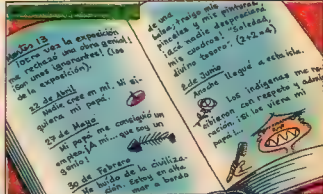 Martes 13
¡Otra vez la exposición
me rechazó una obra genial!
¡Son unos ignorantes! (los
de la exposición).
22 de Abril
Nadie cree en mí. Ni si-
quiera mi papá.
27 de Mayo
Mi papá me consiguió un
empleo. ¡A mí... que soy un
genio!
30 de Febrero
He huido de la civiliza-
ción. Estoy en alta
mar a bordo
de una
balsa. Traigo mis
pinceles y mis pinturas.
¡acá nadie despreciará
mis cuadros! "Soledad,
divino tesoro." (2+2=4)
2 de Junio
Anoche llegué a esta isla.
Los indígenas me re-
cibieron con respeto y admi-
ración. ¡Si los viera mi
papá!..